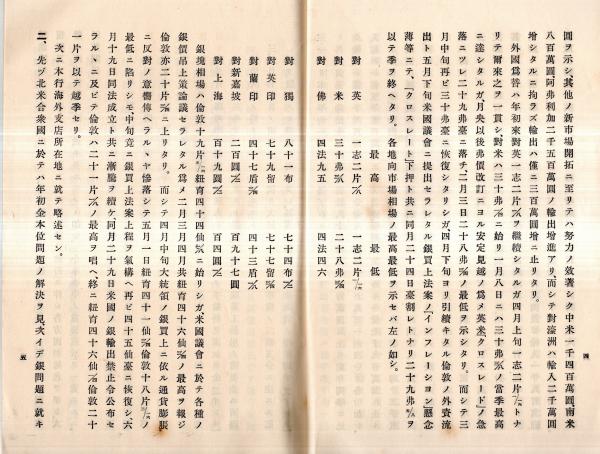 圓ヲ示シ其他ノ新市場開拓ニ至リテハ努力ノ效著シク中米一千四百萬圓南米
八百萬圓阿弗利加二千五百萬圓ノ輸出增進アリ、而シテ對濠洲ハ輸入二千萬圓
增シタルニ拘ラズ輸出ハ僅ニ三百萬圓增ニ止リタリ。
外國爲替ハ年初來對英一志二片ヲ繼續シタルガ四月上旬一志二片トナ
リテ爾來之ヲ一貫シ、對米ハ三十弗ニ始リ一月八日ニハ三十弗ノ當季最高
ニ達シタルガ月央以後弗價改訂ニヨル安定見越ノ爲メ英米「クロスレート」ノ急
落ニツレ二十九弗臺ニ落チ二月三日二十八弗ノ最低ヲ示シタリ。而シテ三
月中旬再ビ三十弗臺ニ恢復シタリシガ四月下旬ヨリ引續キタル倫敦ノ外資流
出ト五月下旬米國議會ニ提出セラレタル銀買上法案ノ「インフレーション」懸念
薄等ニテ、「クロスレート」下押ト共ニ同月二十四日臺割レトナリ二十九弗ヲ
以テ季ヲ終ヘタリ。各地向市場相場ノ最高最低ヲ示セバ左ノ如シ。
最高 最低
對英 一志二片 一志二片
對米 三十弗 二十八弗
對佛 四法九五 四法四六
對獨 八十一布 七十四布
對英印 七十九留 七十七留
對蘭印 四十七盾 四十三盾
對新嘉坡 二百圓 百九十七圓
對上海 百十九圓 百四圓
銀塊相場ハ倫敦十九片紐育四十四仙ニ始リシガ米國議會ニ於テ各種ノ
銀價吊上策論議セラレタル爲メ二月三月四月共紐育四十六仙ノ最高ヲ報ジ
倫敦亦二十片ニ上リタリ。而シテ四月中旬大統領ノ銀買上ニ依ル通貨膨脹
ニ反對ノ意嚮傳ヘラルヽヤ慘落シテ五月一日紐育四十一仙倫敦十八片ノ
最低ニ陷リシモ、中旬竟ニ銀買上法案上程ヲ氣構ヘ再ビ四十五仙臺ニ恢復シ、六
月十九日同法成立ト共ニ漸騰ヲ續ケ、同月二十九日米國ノ銀輸出禁止令公布セ
ラルヽニ及ビテ倫敦ハ二十一片ノ最高ヲ唱ヘ、終ニ紐育四十六仙倫敦二十
一片ヲ以テ越季セリ。
次ニ本行海外支店所在地ニ就テ略述セシ。
二、先ヅ北米合衆國ニ於テハ年初金本位問題ノ解決ヲ見、次イデ銀問題ニ就キ
四
五